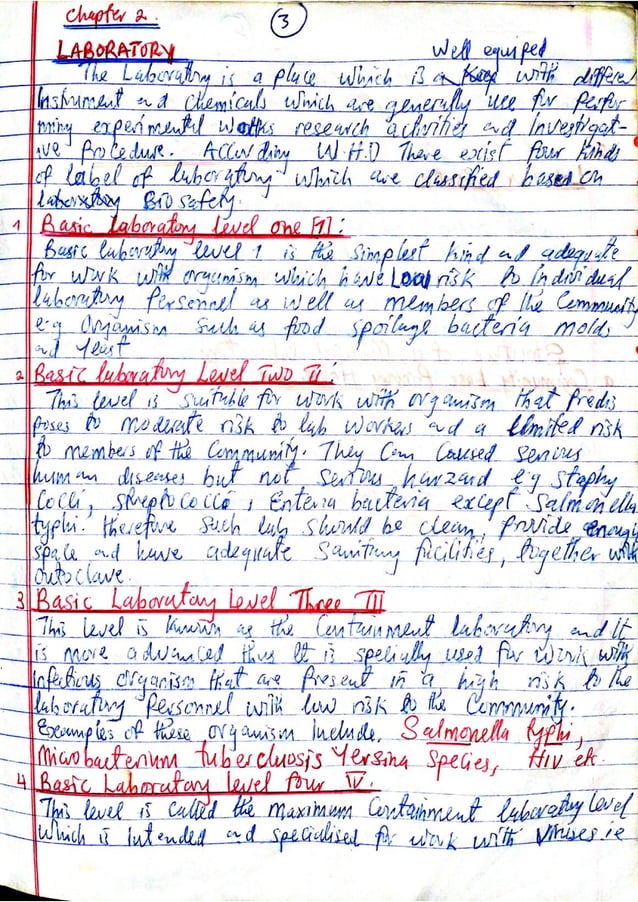 Chapter 2.
3
LABORATORY
Well equiped
The Laboratory is a place which is a with differe
Instrument and chemicals which are generally use for Perfor
ming experimental works research activities and Investigat-
ive Procedure. According W.H.O There exist four kinds
of label of laboratory which are classified based on
laboratory Bio safety.
1 Basic laboratory level one [1]:
Basic laboratory level 1 is the simplest kind and adequate
for work with organism which have Loal risk to Individual
laboratory Personnel as well as members of the Community
e.g Organism such as food spoilage bacteria molds
and Yeast
2 Basic laboratory Level Two II:
This level is suitable for work with organism that Predis
poses to moderate risk to lab workers and a limited risk
to members of the Community. They Can Caused serious
human diseases but not serious harzard e.g staphy
cocci, streptococci, Enteria bacteria except Salmonella
typhi. therefore such lab should be clean, Provide enough
space and have adequate sanitary facilities, together with
autoclave.
3 Basic Laboratory Level Three III
This level is known as the Containment laboratory and It
is more advanced thus It is specially used for work with
infectious organism that are Present in a high risk to the
laboratory Personnel with low risk to the Community.
Examples of these organism Include. Salmonella typhi,
Microbacterium tubercluosis Yersina Species, HIV etc.
4 Basic Laboratory level four IV.
This level is called the maximum Containment laboratory Level
which is Intended and specialised for work with Viruses ie